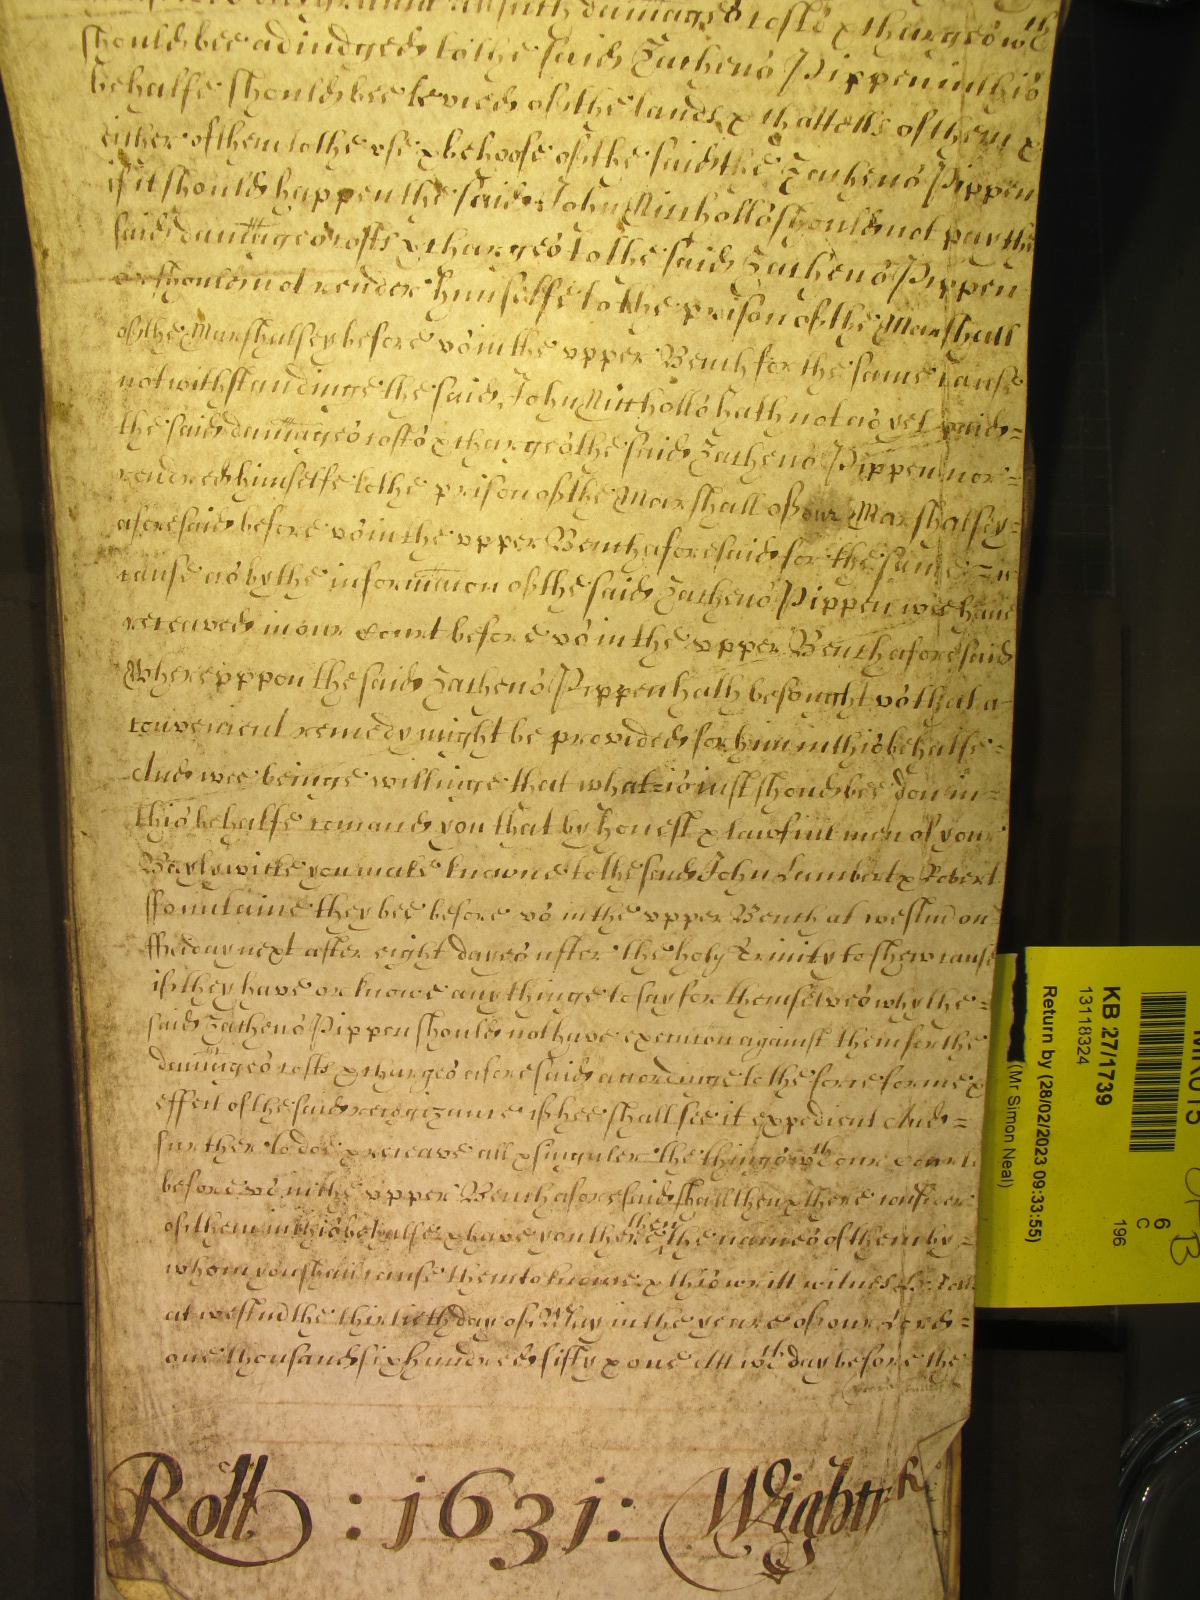 damages costs & charges wch
should bee adiudged to the said Zacheus Pippen in this
behalfe should bee levied of the lands & chattells of them &
either of them to the vse & behoofe of the said the Zacheus Pippen
if it should happen the said John Niccholls should not pay the
said damages costs & charges to the said Zacheus Pippen
or should not render himselfe to the prison of the Marshall
of the Marshalsey before vs in the vpper Bench for the same cause
notwithstandinge the said John Niccholls hath not as yet paid =
the said damages costs & charges the said Zacheus Pippen nor =
rendred himselfe to the prison of the Marshall of our Marshalsey =
aforesaid before vs in the vpper Bench aforesaid for the same =
cause as by the informacion of the said Zacheus Pippen wee have
receaved in our Court before vs in the vpper Bench aforesaid
Wherevppon the said Zacheus Pippen hath besought vs that a
convenient remedy might be provided for him in this behalfe =
And wee beinge willinge that what is iust should bee don in =
this behalfe comand you that by honest & lawfull men of your
Baylywicke you make knowne to the said John Lambert & Robert
ffountaine they bee before vs in the vpper Bench at westm on
ffriday next after eight dayes after the holy Trinity to shew cause
if they have or knowe any thinge to say for themselves why the =
said Zacheus Pippen should not have execucion against them for the
damages costs & charges aforesaid accordinge to the force forme &
effect of the said recognizance if hee shall see it expedient And =
further to doe & receave all & singuler the things wch our Court
before vs in the vpper Bench aforesaid shall then & there consider
of them in this behalfe & have you there then the names of them by =
whom you shall cause them to knowe & this writt witnes H: Rolle
at westm the thirtieth day of May in the yeare of our Lord =
one thousand six hundred fifty & one Att wch day before the
Roll : 1631 : Wightw
KB 27/1739
13118324
Return by (28/02/2023 09:33:55)
(Mr Simon Neal)
6
C
196